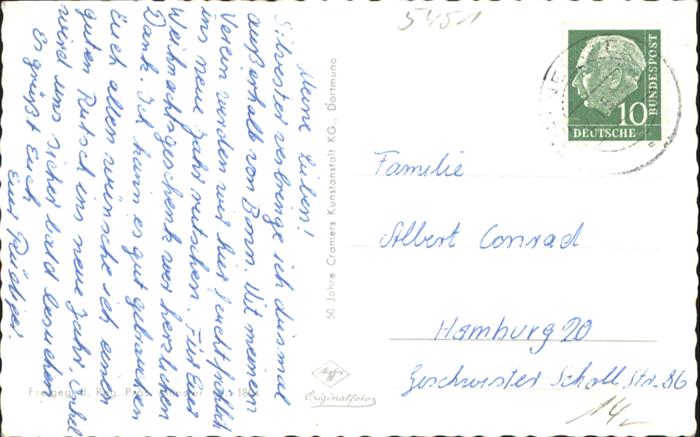 Meine Lieben!
Silvester verbringe ich diesmal
außerhalb von Bonn. Mit meinem
Verein werden wir hier feucht fröhlich
ins neue Jahr rutschen. Für Euer
Weihnachtsgeschenk recht herzlichen
Dank. Ich kann es gut gebrauchen
Euch allen wünsche ich einen
guten Rutsch ins neue Jahr. Onkel
wird uns sicher bald besuchen.
Es grüßt Euch
Euer Rüdiger.
50 Jahre Cramers Kunstanstalt KG., Dortmund
Agfa
Originalfoto
5451
10
DEUTSCHE
BUNDESPOST
Familie
Albert Conrad
Hamburg 20
Geschwister Scholl Str. 86
14,-